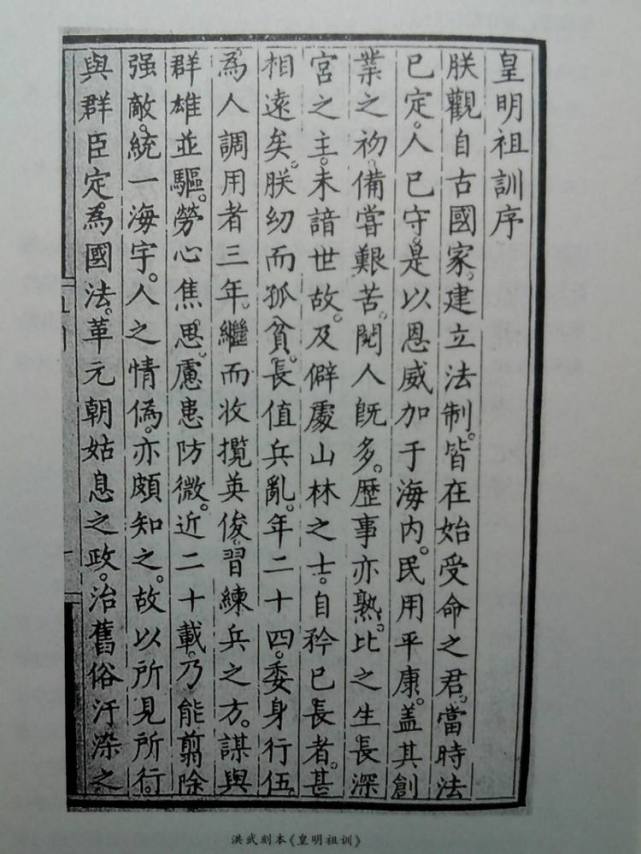 皇明祖訓序
朕觀自古國家。建立法制。皆在始受命之君。當時法
已定。人已守。是以恩威加于海内。民用平康。盖其創
業之初。備嘗艱苦。閱人旣多。歷事亦熟。比之生長深
宮之主。未諳世故。及僻處山林之士。自矜已長者。甚
相遠矣。朕幼而孤貧。長值兵亂。年二十四。委身行伍。
為人調用者三年。繼而收攬英俊。習練兵之方。謀與
群雄並驅。勞心焦思。慮患防微。近二十載。乃能翦除
强敵。統一海宇。人之情僞。亦頗知之。故以所見所行。
與群臣定為國法。革元朝姑息之政。治舊俗汙染之
洪武刻本《皇明祖训》